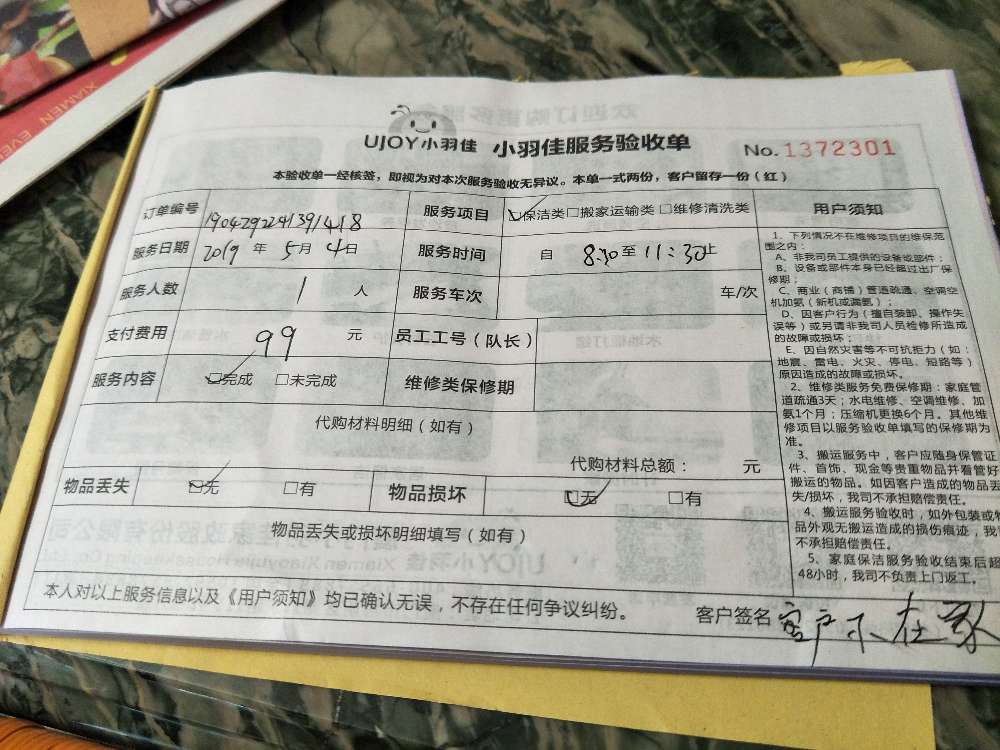 XIAMEN EVE
UJOY小羽佳 小羽佳服务验收单 No.1372301
本验收单一经核签，即视为对本次服务验收无异议。本单一式两份，客户留存一份（红）
订单编号 1904292241391418 服务项目 ☑保洁类□搬家运输类□维修清洗类
服务日期 2019 年 5 月 4 日 服务时间 自 8:30 至 11:30 止
服务人数 1 人 服务车次 车/次
支付费用 99 元 员工工号（队长）
服务内容 ☑完成 □未完成 维修类保修期
代购材料明细（如有）
代购材料总额： 元
物品丢失 ☑无 □有 物品损坏 ☑无 □有
物品丢失或损坏明细填写（如有）
本人对以上服务信息以及《用户须知》均已确认无误，不存在任何争议纠纷。
客户签名 客户不在家
用户须知
1、下列情况不在维修项目的维保范
围之内：
A、非我司员工提供的设备或部件；
B、设备或部件本身已经超过出厂保
修期；
C、商业（商铺）管道疏通、空调空
机加氨（新机或漏氨）；
D、因客户行为（擅自装卸、操作失
误等）或另请非我司人员检修所造成
的故障或损坏；
E、因自然灾害等不可抗拒力（如：
地震、雷电、火灾、停电、短路等）
原因造成的故障或损坏。
2、维修类服务免费保修期：家庭管
道疏通3天；水电维修、空调维修、加
氨1个月；压缩机更换6个月。其他维
修项目以服务验收单填写的保修期为
准。
3、搬运服务中，客户应随身保管证
件、首饰、现金等贵重物品并看管好
搬运的物品。如因客户造成的物品丢
失/损坏，我司不承担赔偿责任。
4、搬运服务验收时，如外包装或物
品外观无搬运造成的损伤痕迹，我
不承担赔偿责任。
5、家庭保洁服务验收结束后超
48小时，我司不负责上门返工。